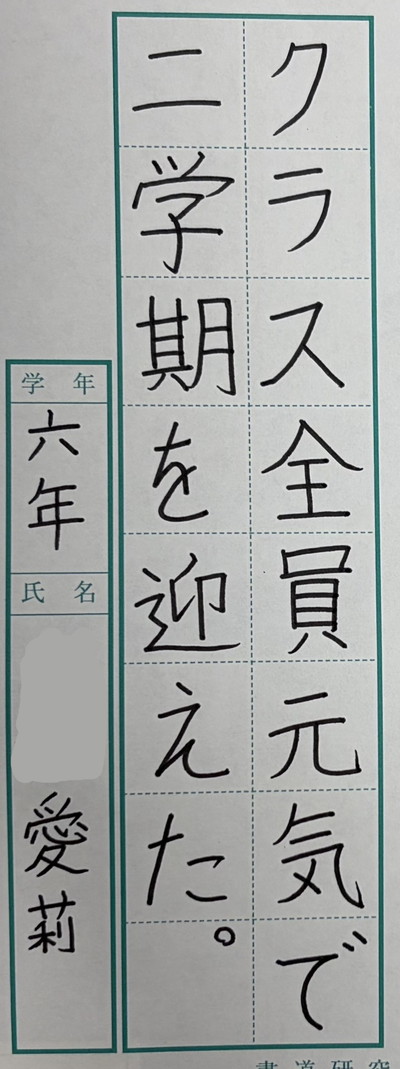 クラス全員元気で
二学期を迎えた。
学年
六年
氏名
愛莉
書道研究